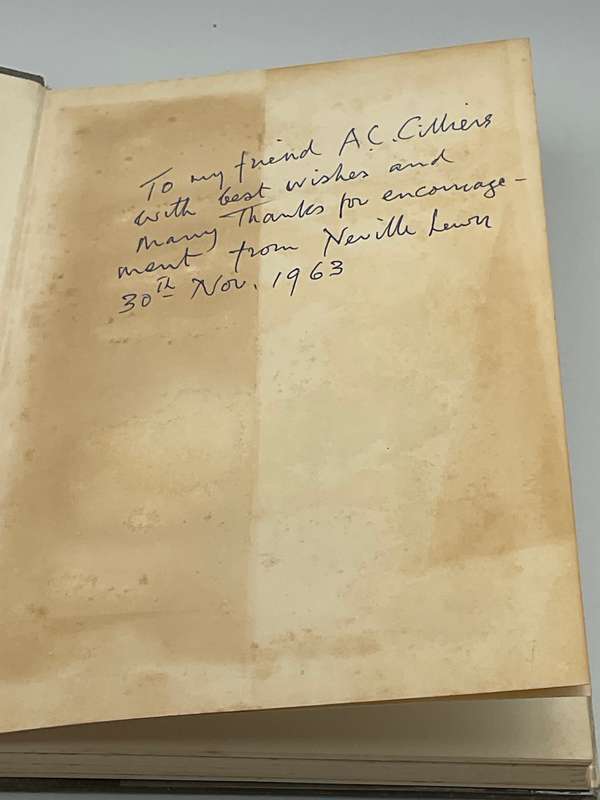 To my friend A.C. Cilliers
with best wishes and
many Thanks for encourage-
ment from Neville Lewis
30th Nov. 1963